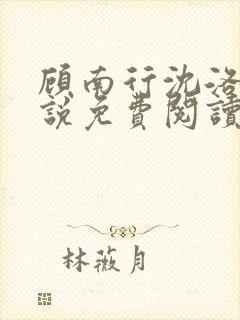 顾南行沈洛
說免費閱讀
林薇月